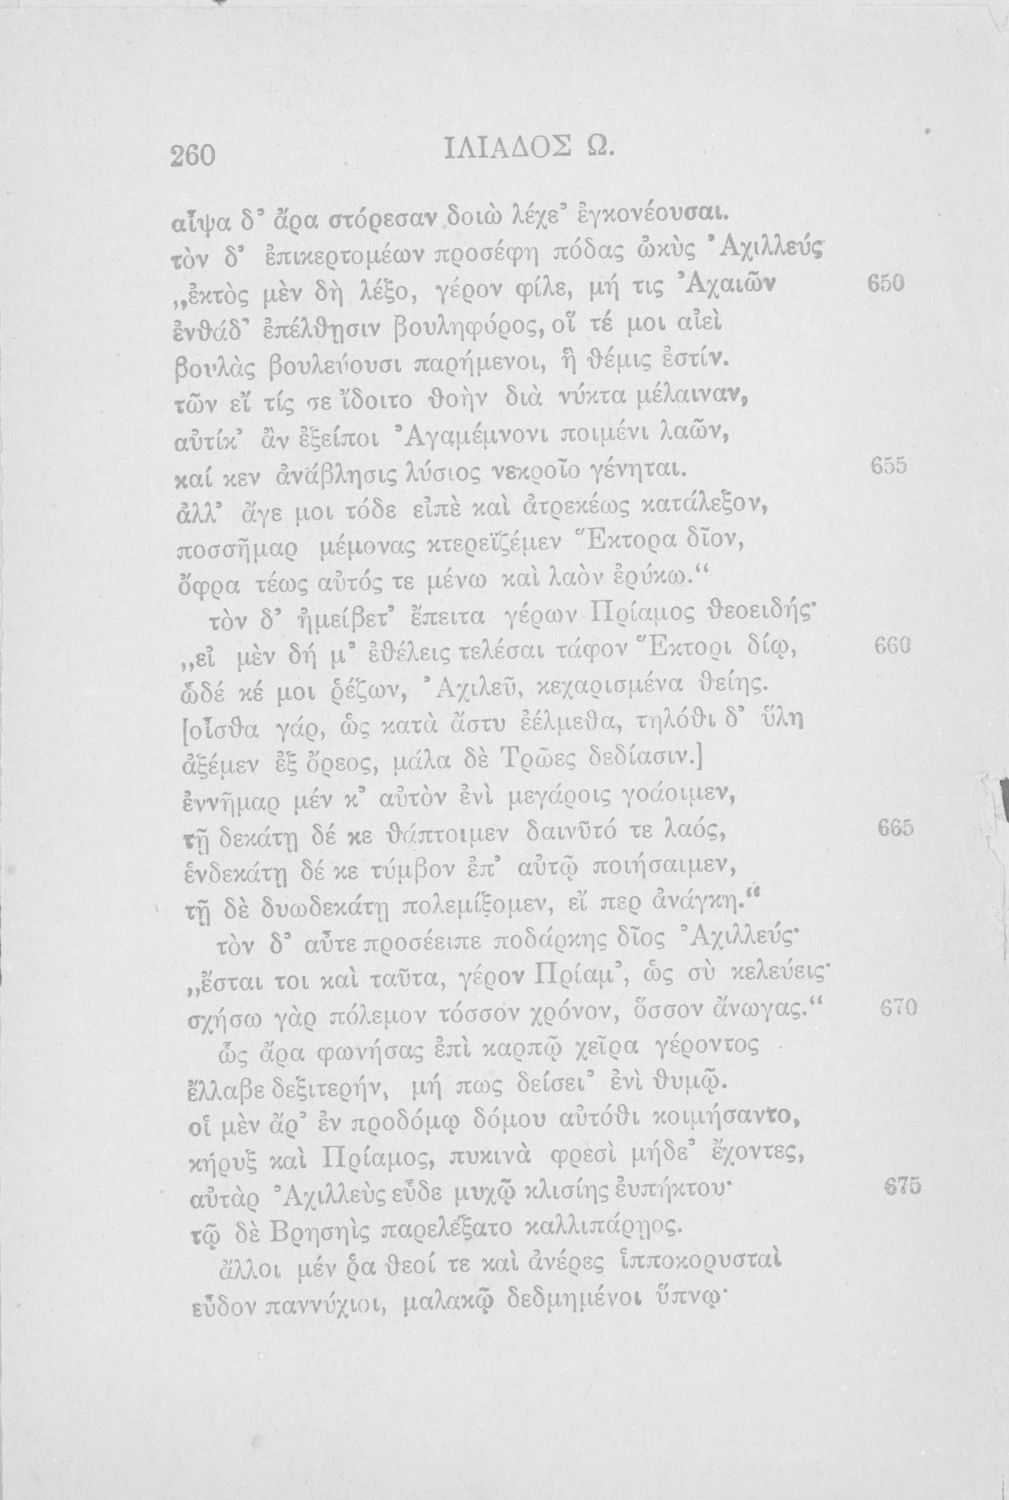 260 ΙΛΙΑΔΟΣ Ω.
αἶψα δ’ ἄρα στόρεσαν δοιὼ λέχε’ ἐγκονέουσαι.
τὸν δ’ ἐπικερτομέων προσέφη πόδας ὠκὺς Ἀχιλλεύς·
„ἐκτὸς μὲν δὴ λέξο, γέρον φίλε, μή τις Ἀχαιῶν 650
ἐνθάδ’ ἐπέλθησιν βουληφόρος, οἵ τέ μοι αἰεὶ
βουλὰς βουλεύουσι παρήμενοι, ἣ θέμις ἐστίν.
τῶν εἴ τίς σε ἴδοιτο θοὴν διὰ νύκτα μέλαιναν,
αὐτίκ’ ἂν ἐξείποι Ἀγαμέμνονι ποιμένι λαῶν,
καί κεν ἀνάβλησις λύσιος νεκροῖο γένηται. 655
ἀλλ’ ἄγε μοι τόδε εἰπὲ καὶ ἀτρεκέως κατάλεξον,
ποσσῆμαρ μέμονας κτερεϊζέμεν Ἕκτορα δῖον,
ὄφρα τέως αὐτός τε μένω καὶ λαὸν ἐρύκω.“
τὸν δ’ ἠμείβετ’ ἔπειτα γέρων Πρίαμος θεοειδής·
„εἰ μὲν δή μ’ ἐθέλεις τελέσαι τάφον Ἕκτορι δίῳ, 660
ὧδέ κέ μοι ῥέζων, Ἀχιλεῦ, κεχαρισμένα θείης.
[οἶσθα γάρ, ὡς κατὰ ἄστυ ἐέλμεθα, τηλόθι δ’ ὕλη
ἀξέμεν ἐξ ὄρεος, μάλα δὲ Τρῶες δεδίασιν.]
ἐννῆμαρ μέν κ’ αὐτὸν ἐνὶ μεγάροις γοάοιμεν,
τῇ δεκάτῃ δέ κε θάπτοιμεν δαινῦτό τε λαός, 665
ἑνδεκάτῃ δέ κε τύμβον ἐπ’ αὐτῷ ποιήσαιμεν,
τῇ δὲ δυωδεκάτῃ πολεμίξομεν, εἴ περ ἀνάγκη.“
τὸν δ’ αὖτε προσέειπε ποδάρκης δῖος Ἀχιλλεύς·
„ἔσται τοι καὶ ταῦτα, γέρον Πρίαμ’, ὡς σὺ κελεύεις·
σχήσω γὰρ πόλεμον τόσσον χρόνον, ὅσσον ἄνωγας.“ 670
ὣς ἄρα φωνήσας ἐπὶ καρπῷ χεῖρα γέροντος
ἔλλαβε δεξιτερήν, μή πως δείσει’ ἐνὶ θυμῷ.
οἱ μὲν ἄρ’ ἐν προδόμῳ δόμου αὐτόθι κοιμήσαντο,
κήρυξ καὶ Πρίαμος, πυκινὰ φρεσὶ μήδε’ ἔχοντες,
αὐτὰρ Ἀχιλλεὺς εὗδε μυχῷ κλισίης ἐυπήκτου· 675
τῷ δὲ Βρησηὶς παρελέξατο καλλιπάρῃος.
ἄλλοι μέν ῥα θεοί τε καὶ ἀνέρες ἱπποκορυσταὶ
εὗδον παννύχιοι, μαλακῷ δεδμημένοι ὕπνῳ·